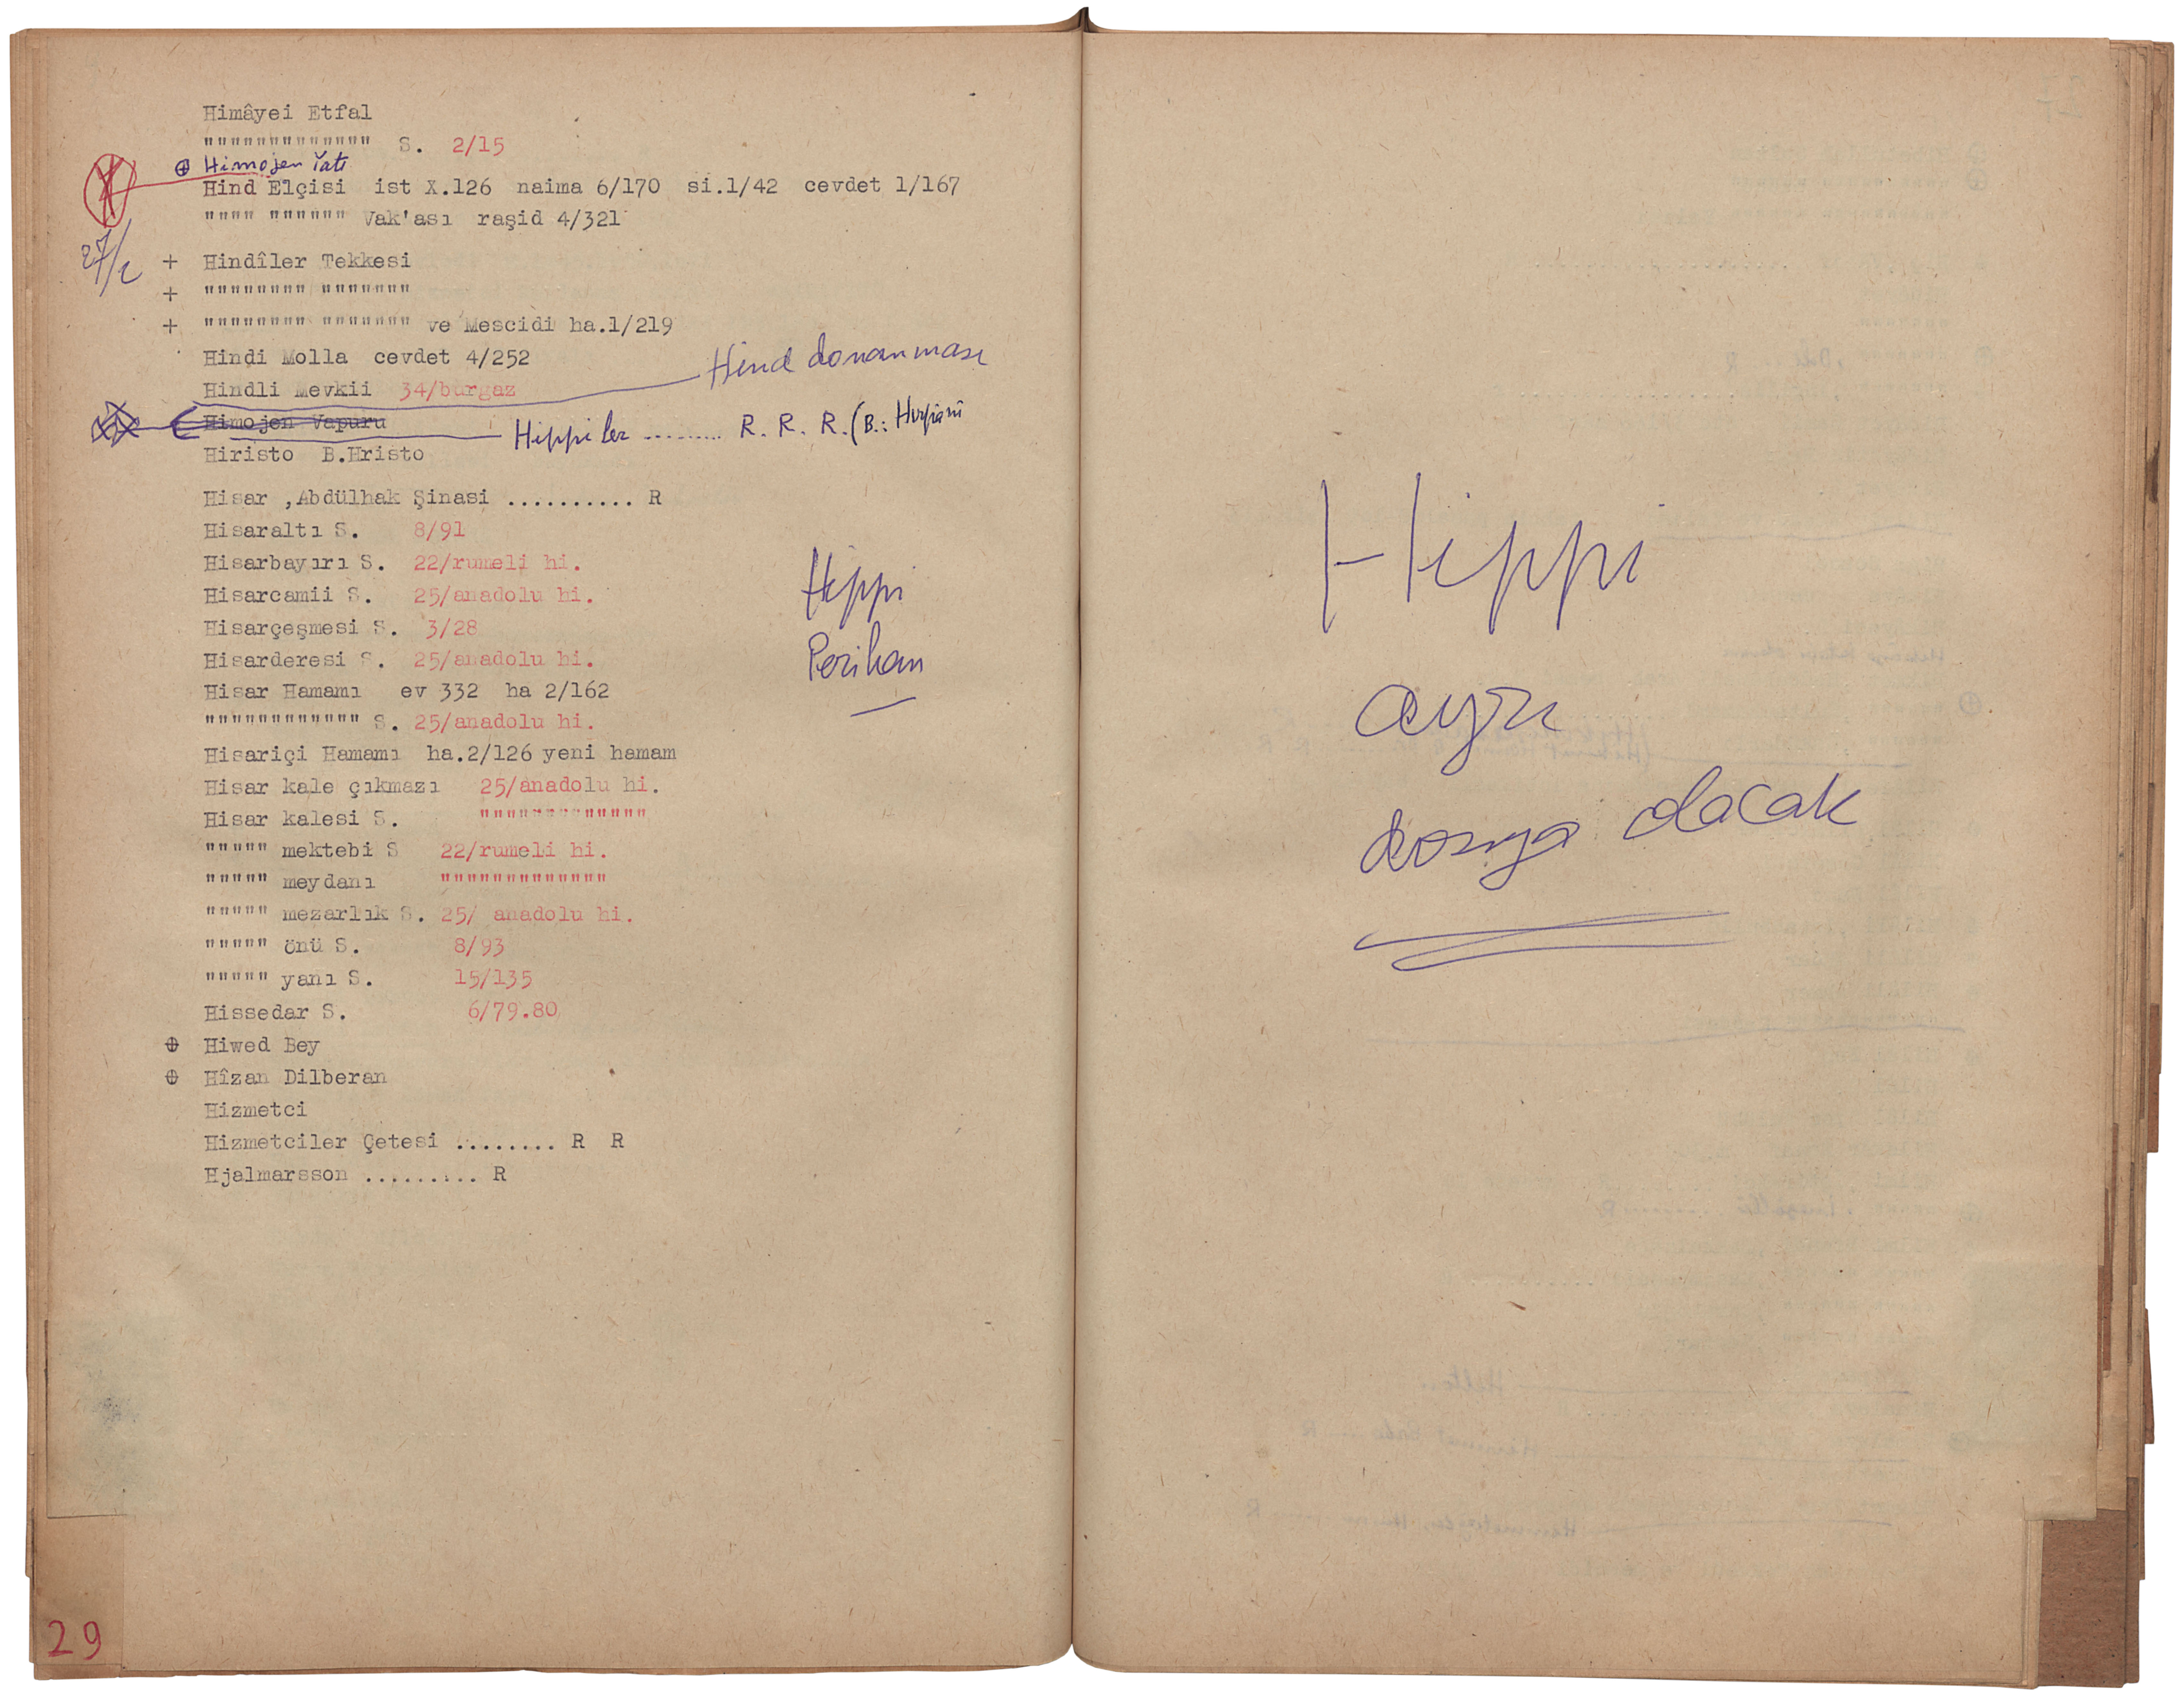 Himâyei Etfal
""""""""""""" S. 2/15
⊕ Himojen Yatı
Hind Elçisi ist X.126 naima 6/170 si.1/42 cevdet 1/167
"""" """""" Vak'ası raşid 4/321
27/2
+ Hindîler Tekkesi
+ """""""" """""""
+ """""""" """"""" ve Mescidi ha.1/219
Hindi Molla cevdet 4/252
Hind donanması
Hindli Mevkii 34/burgaz
Himojen Vapuru
Hippiler ......... R. R. R. (B.:
Hiristo B.Hristo
Hisar ,Abdülhak Şinasi .......... R
Hisaraltı S. 8/91
Hisarbayırı S. 22/rumeli hi.
Hisarcamii S. 25/anadolu hi.
Hisarçeşmesi S. 3/28
Hisarderesi S. 25/anadolu hi.
Hisar Hamamı ev 332 ha 2/162
"""""""""""" S. 25/anadolu hi.
Hisariçi Hamamı ha.2/126 yeni hamam
Hisar kale çıkmazı 25/anadolu hi.
Hisar kalesi S. """""""""""""
""""" mektebi S 22/rumeli hi.
""""" meydanı """""""""""""
""""" mezarlık S. 25/ anadolu hi.
""""" önü S. 8/93
""""" yanı S. 15/135
Hissedar S. 6/79.80
⊕ Hiwed Bey
⊕ Hîzan Dilberan
Hizmetci
Hizmetciler Çetesi ........ R R
Hjalmarsson ......... R
Hippi
Perihan
29
Hippi
ayrı
dosya olacak